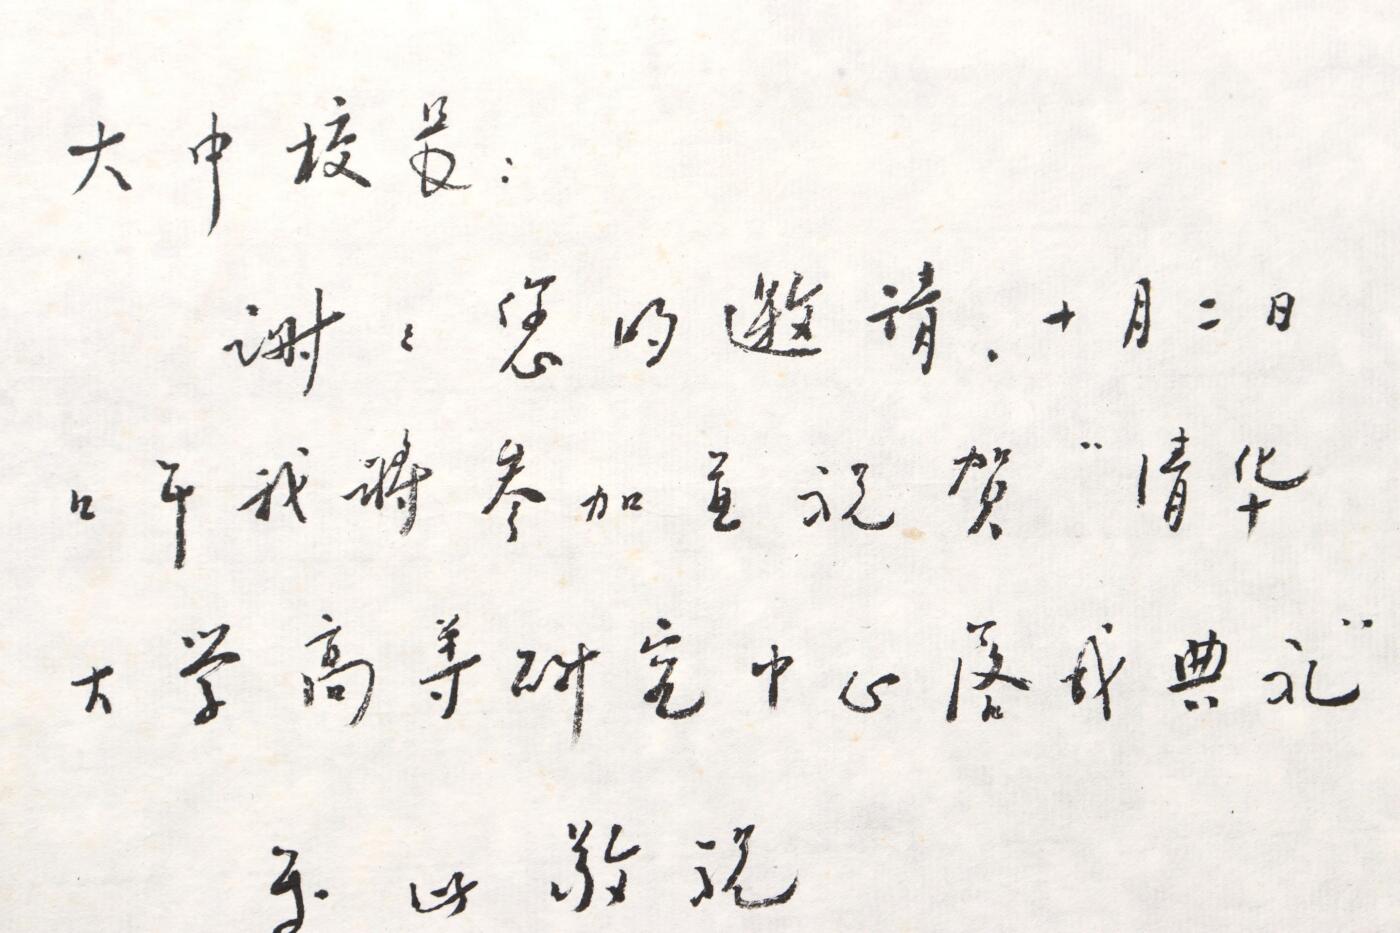 大中校長:
谢々您的邀请.十月二日
午我将参加並祝贺“清华
大学高等研究中心落成典礼”
专此敬祝